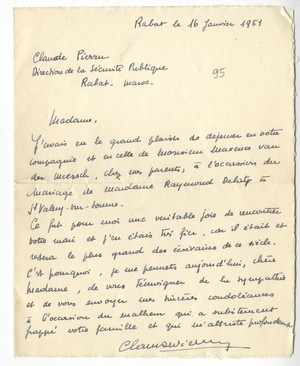 Rabat le 16 Janvier 1951
Claude Pierru
Direction de la Sécurité Publique
Rabat. Maroc.
95
Madame.
J'avais eu le grand plaisir de déjeuner en votre
compagnie et en celle de Monsieur Maxence van
der Mersch, chez vos parents, à l'occasion du
Mariage de Madame Raymond à
St Valery-sur-Somme.
Ce fut pour moi une véritable joie de rencontrer
votre mari et j'en étais très fier, car il était et
restera le plus grand des écrivains de ce siècle.
C'est pourquoi, je me permets aujourd'hui, chère
madame, de vous témoigner de la sympathie
et de vous envoyer mes sincères condoléances
à l'occasion du malheur qui a subitement
frappé votre famille et qui m'attriste profondément